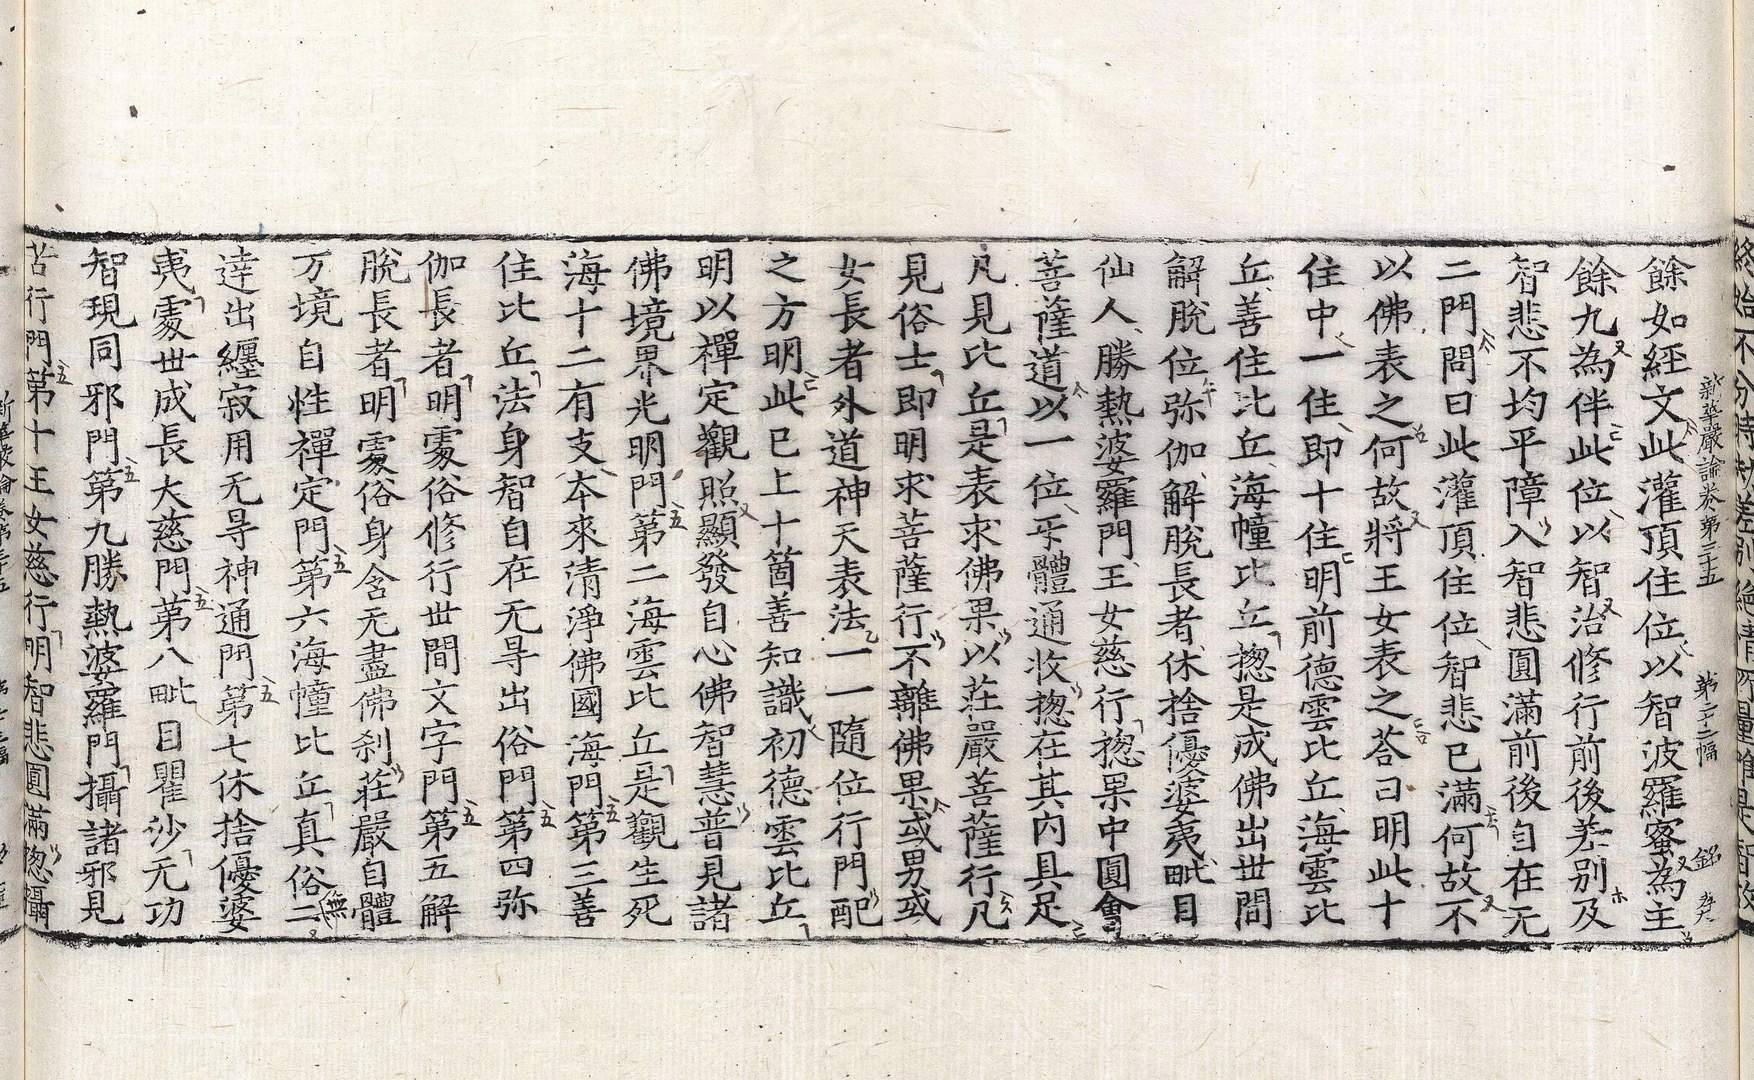 終始不分時劫差別絶情所量唯是智故
新華嚴論卷第三十五 第二十二幅 銘
餘如經文此灌頂住位以智波羅蜜為主
餘九為伴此位以智治修行前後差別及
智悲不均平障入智悲圓滿前後自在无
二門問曰此灌頂住位智悲已滿何故不
以佛表之何故將王女表之荅曰明此十
住中一住即十住明前德雲比丘海雲比
丘善住比丘海幢比丘揔是成佛出世間
解脫位弥伽解脫長者休捨優婆夷毗目
仙人勝熱婆羅門王女慈行揔果中圓會
菩薩道以一位乎體通收揔在其內具足
凡見比丘是表求佛果以莊嚴菩薩行凡
見俗士即明求菩薩行不離佛果或男或
女長者外道神天表法一一隨位行門配
之方明此已上十箇善知識初德雲比丘
明以禪定觀照顯發自心佛智慧普見諸
佛境界光明門第二海雲比丘是觀生死
海十二有支本來清淨佛國海門第三善
住比丘法身智自在无㝵出俗門第四弥
伽長者明處俗修行世間文字門第五解
脫長者明處俗身含无盡佛刹莊嚴自體
万境自性禪定門第六海幢比丘真俗二
達出纏寂用无㝵神通門第七休捨優婆
夷處世成長大慈門第八毗目瞿沙无功
智現同邪門第九勝熱婆羅門攝諸邪見
苦行門第十王女慈行明智悲圓滿揔攝